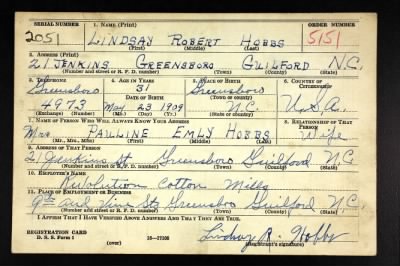 SERIAL NUMBER 1. NAME (Print) ORDER NUMBER
2051 LINDSAY ROBERT HOBBS 5151
(First) (Middle) (Last)
2. ADDRESS (Print)
21 JENKINS GREENSBORO GUILFORD N.C.
(Number and street or R. F. D. number) (Town) (County) (State)
3. TELEPHONE 4. AGE IN YEARS 5. PLACE OF BIRTH 6. COUNTRY OF CITIZENSHIP
Greensboro 31 Greensboro
DATE OF BIRTH (Town or county)
4973 May 23 1909 N.C. U.S.A.
(Exchange) (Number) (Mo.) (Day) (Yr.) (State or country)
7. NAME OF PERSON WHO WILL ALWAYS KNOW YOUR ADDRESS 8. RELATIONSHIP OF THAT PERSON
Mrs PAULINE EMLY HOBBS Wife
(Mr., Mrs., Miss) (First) (Middle) (Last)
9. ADDRESS OF THAT PERSON
21 Jenkins St Greensboro Guilford N.C.
(Number and street or R. F. D. number) (Town) (County) (State)
10. EMPLOYER'S NAME
Revolution Cotton Mills
11. PLACE OF EMPLOYMENT OR BUSINESS
9th and Vine Sts Greensboro Guilford N.C.
(Number and street or R. F. D. number) (Town) (County) (State)
I AFFIRM THAT I HAVE VERIFIED ABOVE ANSWERS AND THAT THEY ARE TRUE.
REGISTRATION CARD
D. S. S. Form 1 (over) 16—17105 Lindsay R. Hobbs
(Registrant's signature)